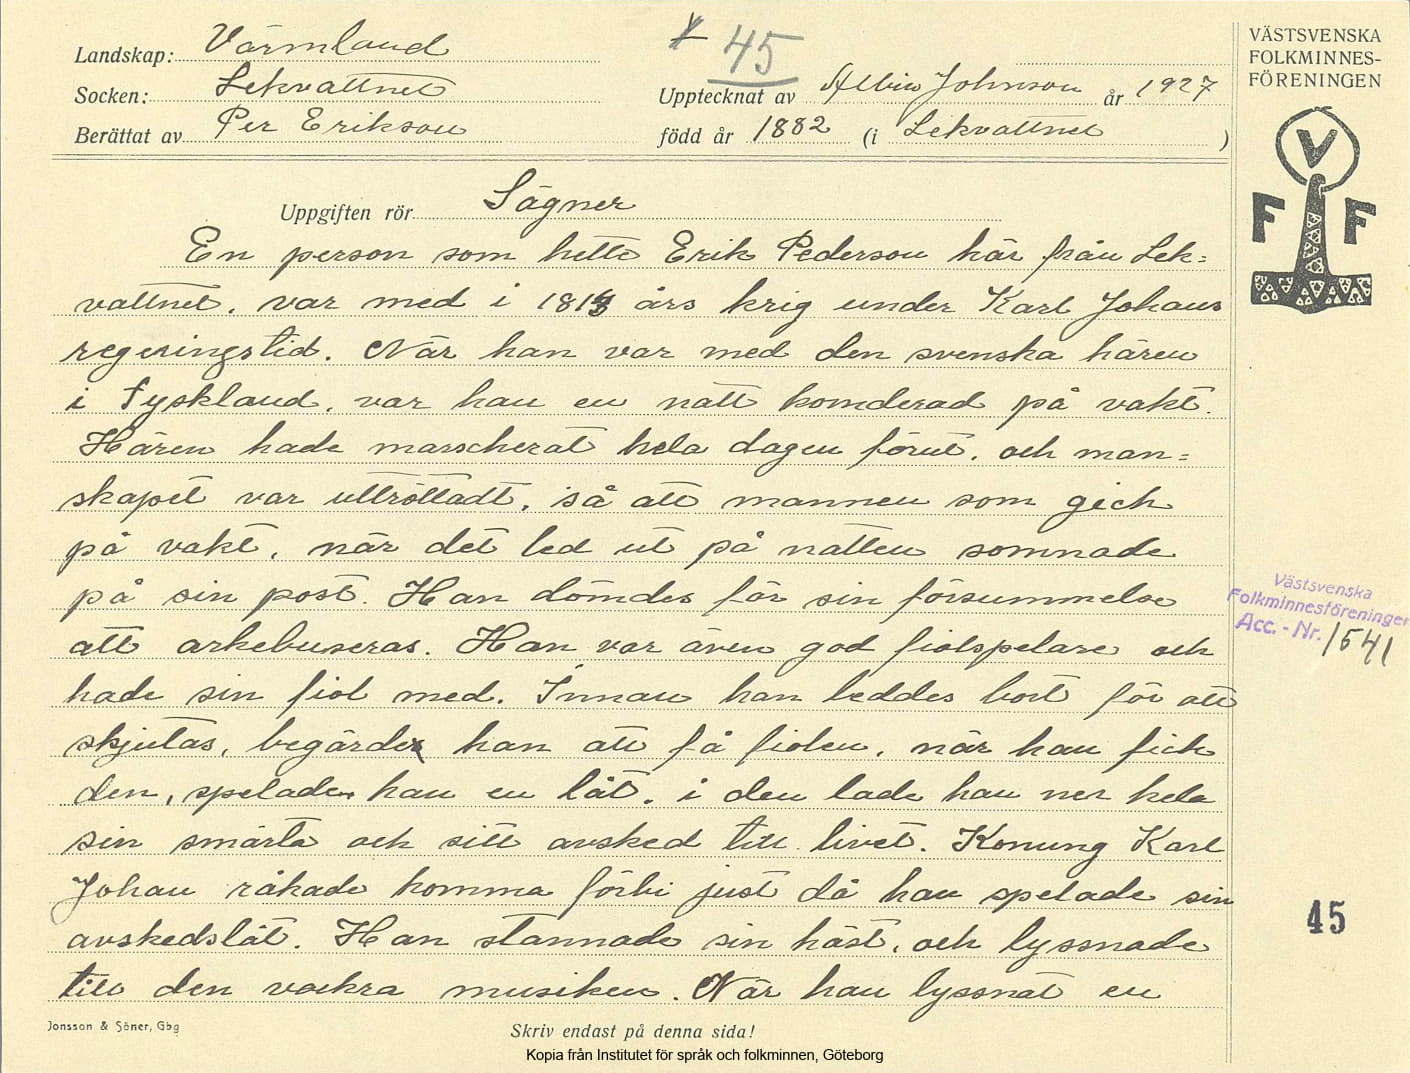 Landskap: Värmland
Socken: Lekvattnet
Berättat av Per Erikson
45
Upptecknat av Albin Johnson år 1927
född år 1882 (i Lekvattnet )
VÄSTSVENSKA
FOLKMINNES-
FÖRENINGEN
V
F F
Uppgiften rör Sägner
En person som hette Erik Pederson här från Lek=
vattnet, var med i 1813 års krig under Karl Johans
regeringstid. När han var med den svenska hären
i Tyskland, var han en natt komderad på vakt.
Hären hade marscherat hela dagen förut, och man=
skapet var uttröttadt, så att mannen som gick
på vakt, när det led ut på natten somnade
på sin post. Han dömdes för sin försummelse
att arkebuseras. Han var även god fiolspelare och
hade sin fiol med. Innan han leddes bort för att
skjutas, begärde han att få fiolen, när han fick
den, spelade han en låt, i den lade han ner hela
sin smärta och sitt avsked till livet. Konung Karl
Johan råkade komma förbi just då han spelade sin
avskedslåt. Han stannade sin häst, och lyssnade
till den vackra musiken. När han lyssnat en
Västsvenska
Folkminnesföreningen
Acc. - Nr. 1541
45
Jonsson & Söner, Gbg
Skriv endast på denna sida!
Kopia från Institutet för språk och folkminnen, Göteborg